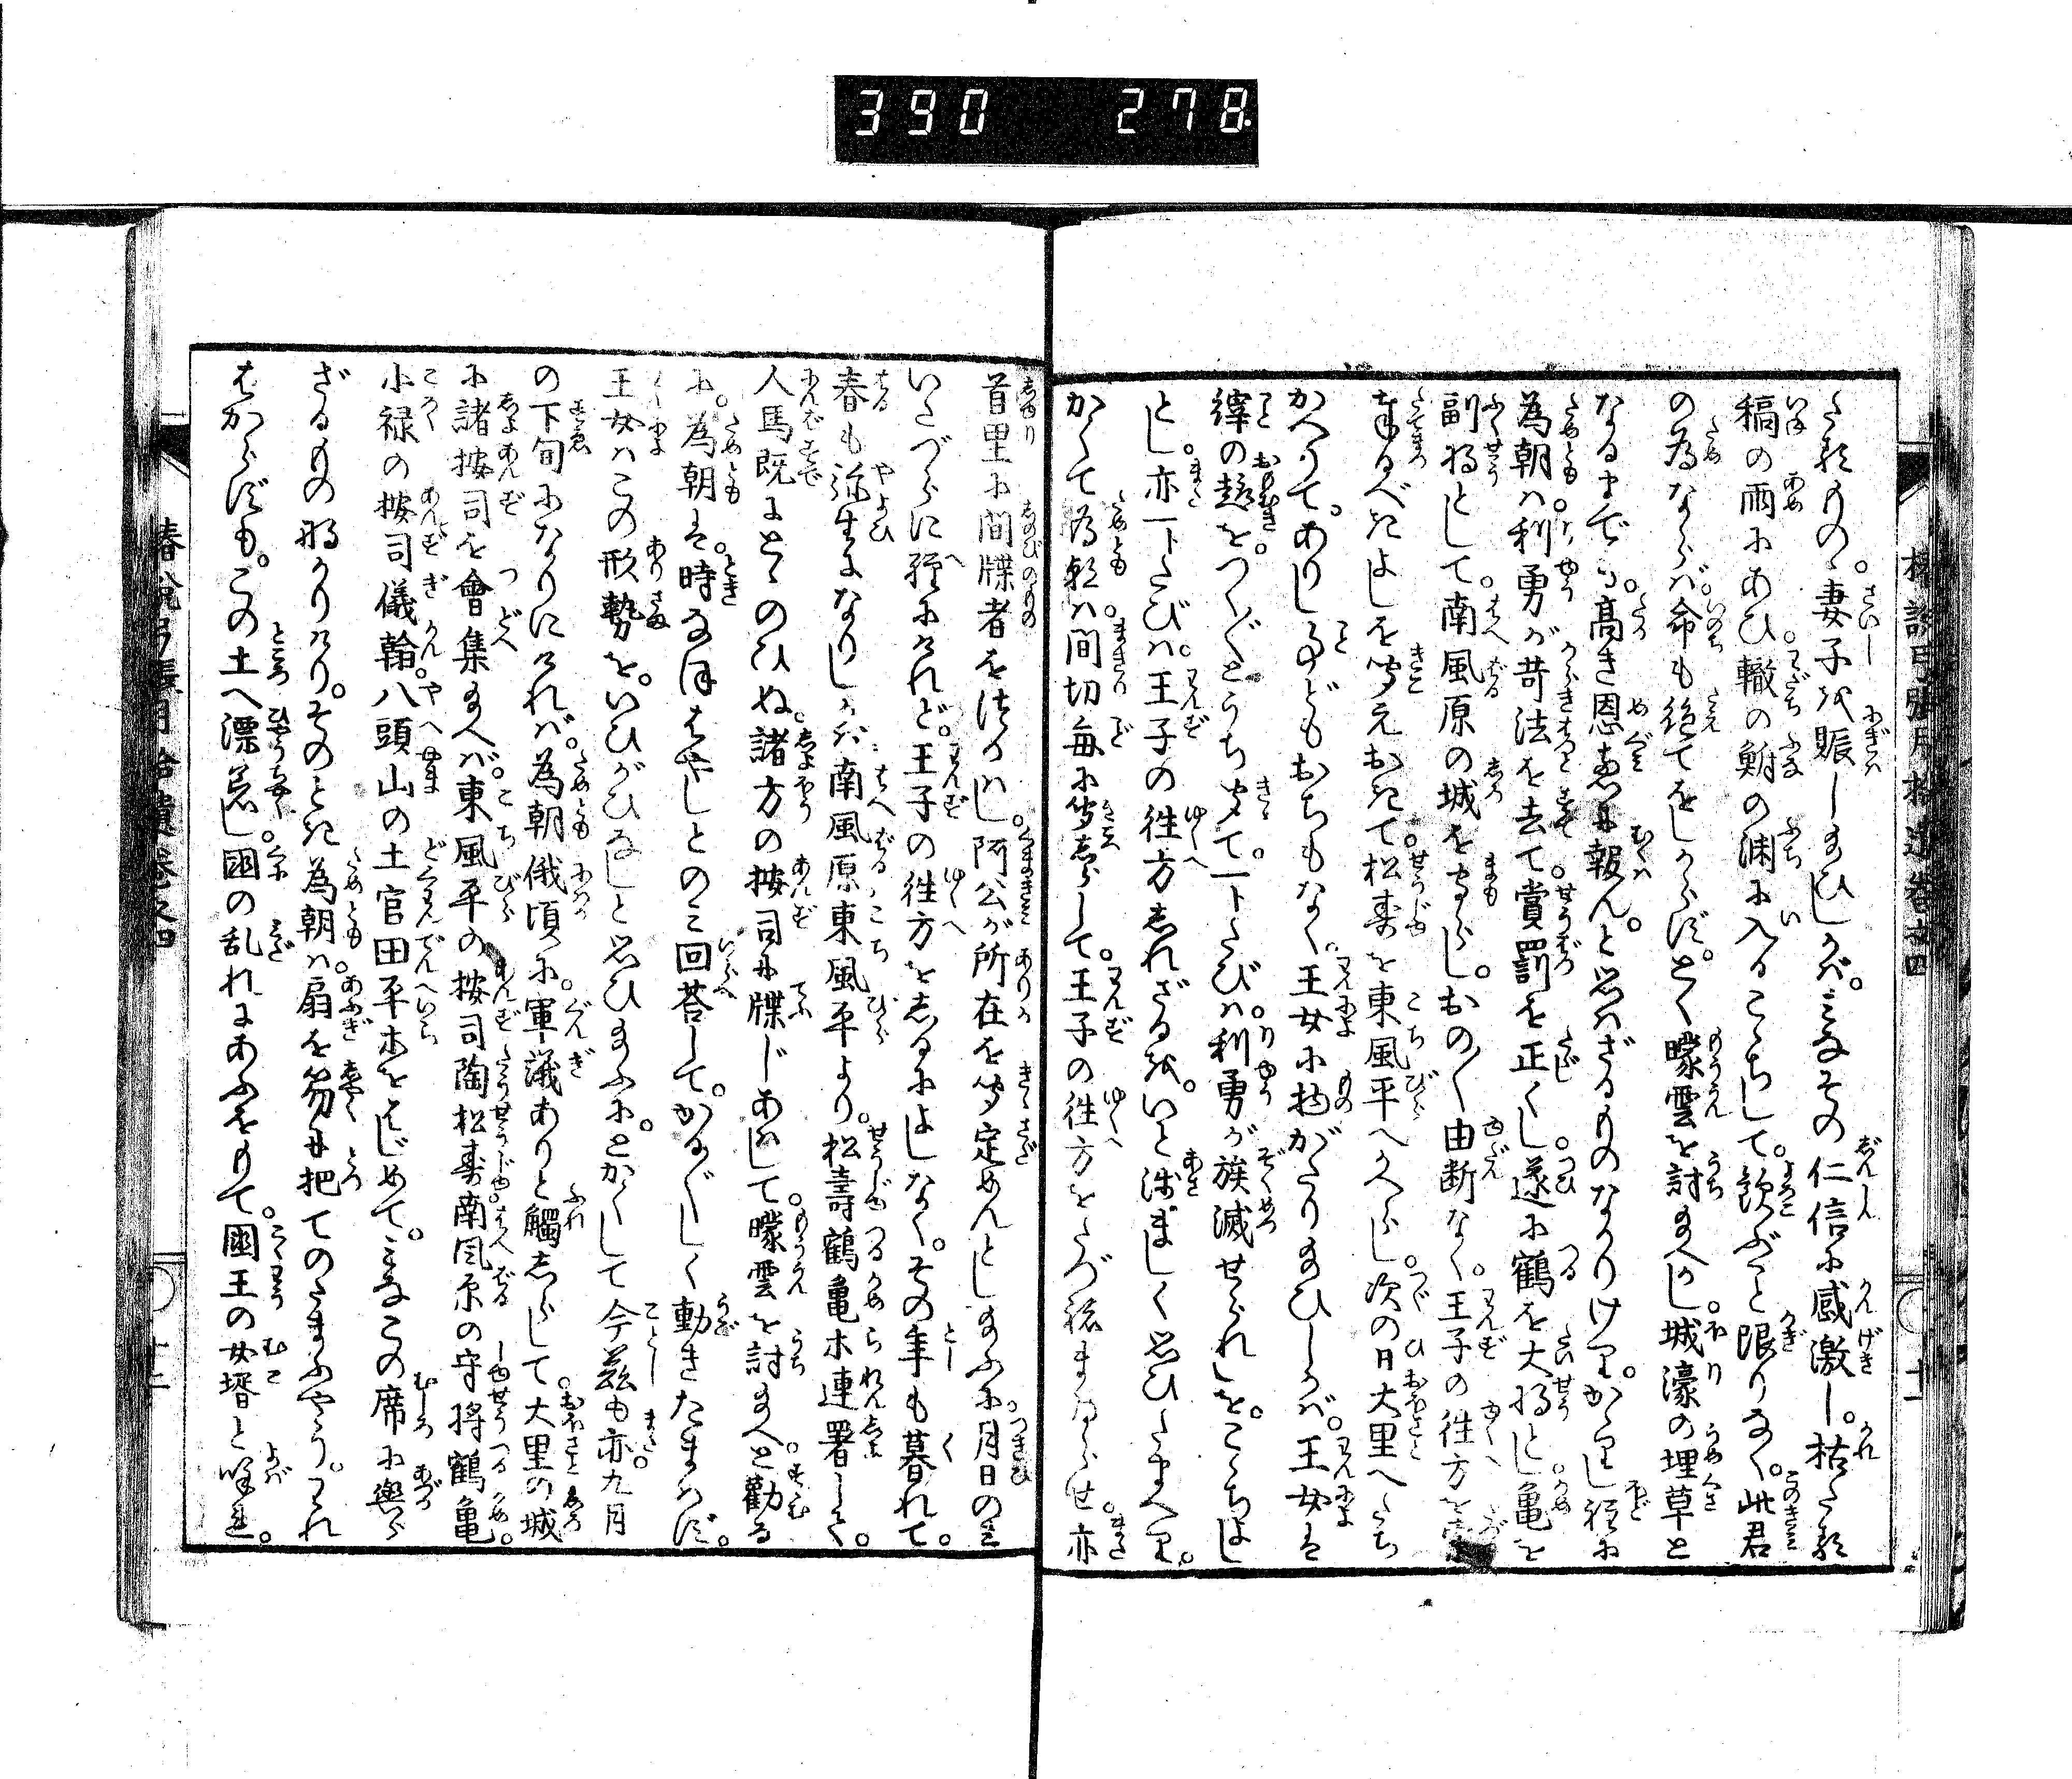 390 278
たるもの。妻子を賑し給ひしかば。みなその仁信に感激し。枯たる
稿の雨にあひ轍の鮒の淵に入るこゝちして。歓ぶこと限りなく。此君
の為ならば。命も絶てをしからず。とく曚雲を討給へかし。城濠の埋草と
なるまでも。高き恩恵に報ん。と思はざるものなかりけり。かゝりし程に
為朝は。利勇が苛法を去て。賞罰を正くし。遂に鶴を大将とし。亀を
副将として。南風原の城を守らし。おの〳〵由断なく。王子の往方を
奉るべきよしを聞えおきて。松寿を東風平へかへらし。次の日大里へたち
かへりて。ありし事どもおちもなく。王女に物がたり給ひしかば。王女は
縡の趣を。つく〴〵とうち聞て。一トたびは。利勇が族滅せられしを。こゝちよし
とし。亦一トたびは。王子の往方しれざるを。いと浅ましく思ひたまへり。
かくて為朝は。間切毎に聞しらして。王子の往方をたづねまゐらせ。亦
首里に間牒者を遣はし。阿公が所在を聞定めんとし給ふに。月日のみ
いたづらに経にけれど。王子の往方をしるによしなく。その年も暮れて。
春も弥生になりしかば。南風原東風平より。松壽鶴亀木連署して。
人馬既にとゝのひぬ。諸方の按司に牒じあはして。曚雲を討給へと勸る
に。為朝は。時なほはやしとのみ回荅して。かる〴〵しく動きたまはず。
王女はこの形勢を。いひがひなしと思ひ給ふに。とかくして今茲も亦。九月
の下旬になりにければ。為朝俄頃に。軍議ありと觸しらして。大里の城
に諸按司を會集給へば。東風平の按司陶松寿。南風原の守將鶴亀。
小禄の按司儀翰。八頭山の土官田平等をはじめて。みなこの席に輿ら
ざるもの那かりけり。そのとき為朝は。扇を笏に把てのたまふやう。われ
はからずも。この土へ漂泊し。國の乱れにあふをもて。國王の女壻と呼る。